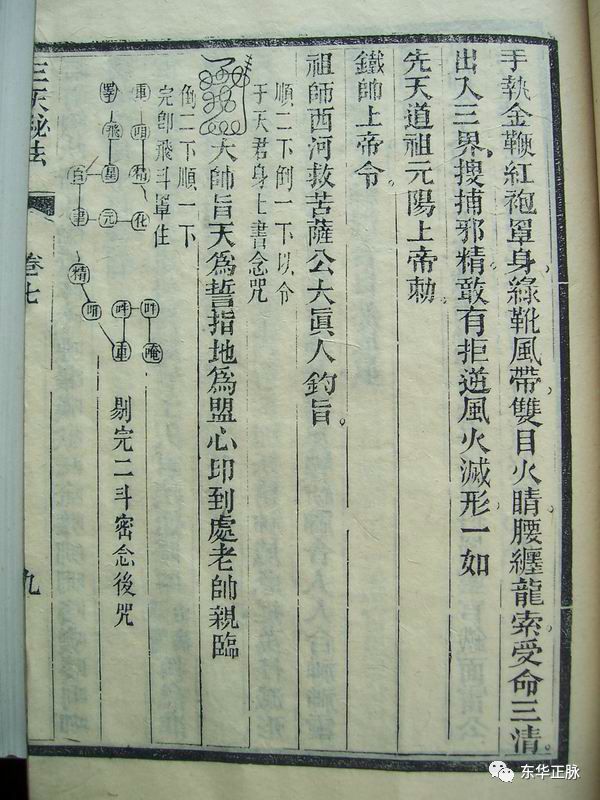 手執金鞭紅袍罩身綠靴風帶雙目火睛腰纏龍索受命三清。
出入三界搜捕邪精敢有拒逆風火滅形一如
先天道祖元陽上帝勅
鐵帥上帝令。
祖師西河救苦薩公大眞人鈞旨。
順二下倒一下以令
于天君身上書念咒
大帥旨天爲誓指地爲盟心印到處老帥親臨
倒二下順一下
完卽飛斗罩住
精
化
元
星
飛
書
精
剔完二斗密念後咒
天祕法
卷七
九
东华正脉